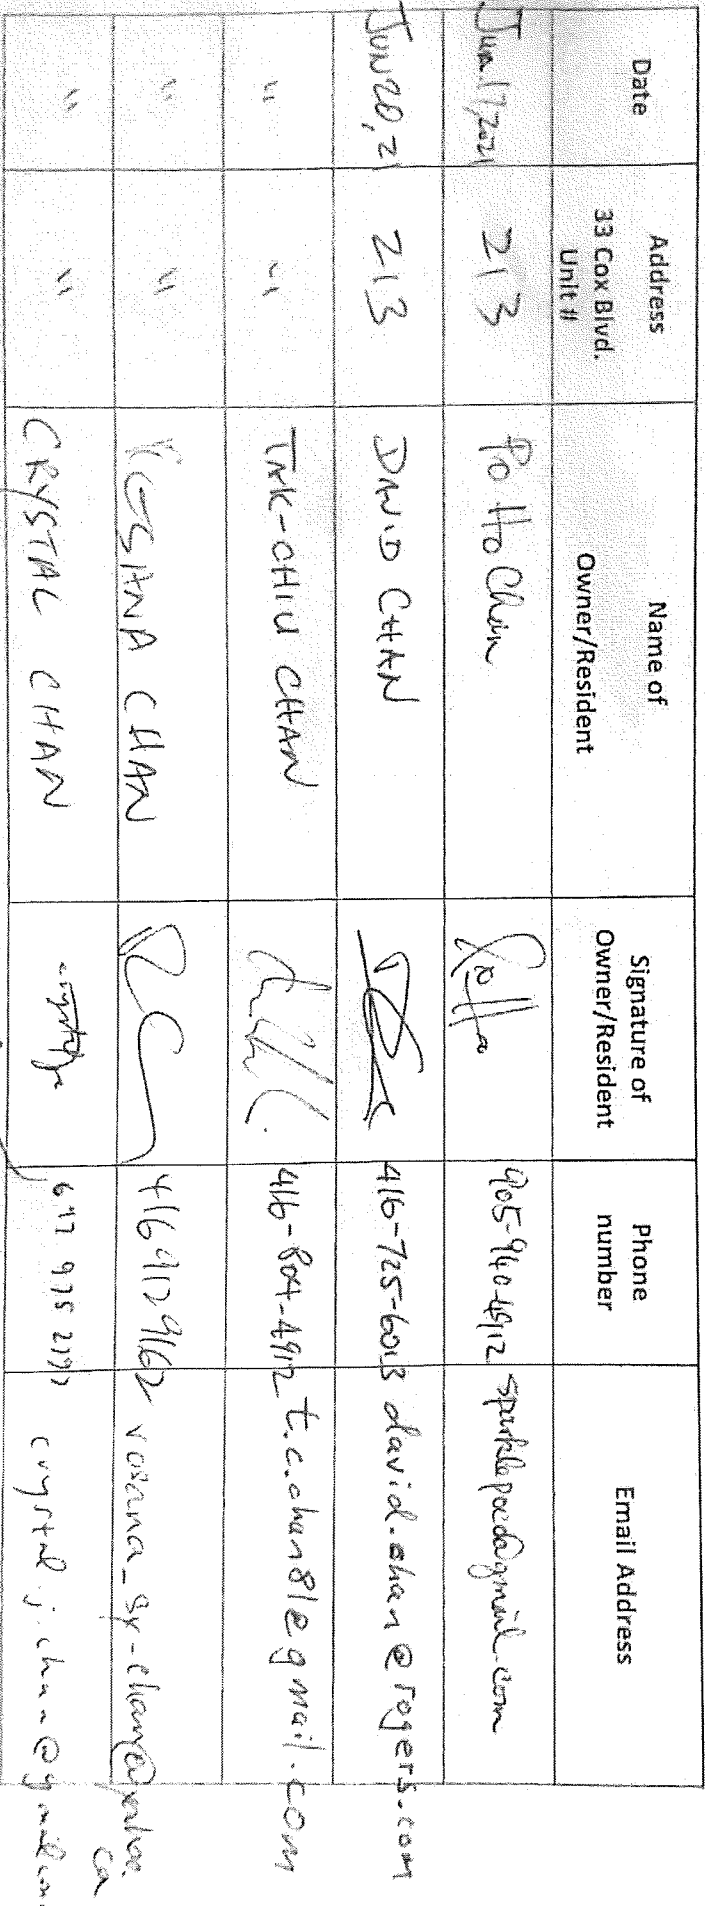 Date
Address
33 Cox Blvd.
Unit #
Name of
Owner/Resident
Signature of
Owner/Resident
Phone
number
Email Address
Jun 17, 2021 213 Po Ho Chan Po Ho 905-940-4912
JUN 20, 21 213 DAVID CHAN 416-725-6013 david.chan@rogers.com
" " TAK-CHIU CHAN 416-804-4912 t.c.chan81@gmail.com
" " ROSANA CHAN RC 416 912 9162
" " CRYSTAL CHAN crystal.j.chan@gmail.com